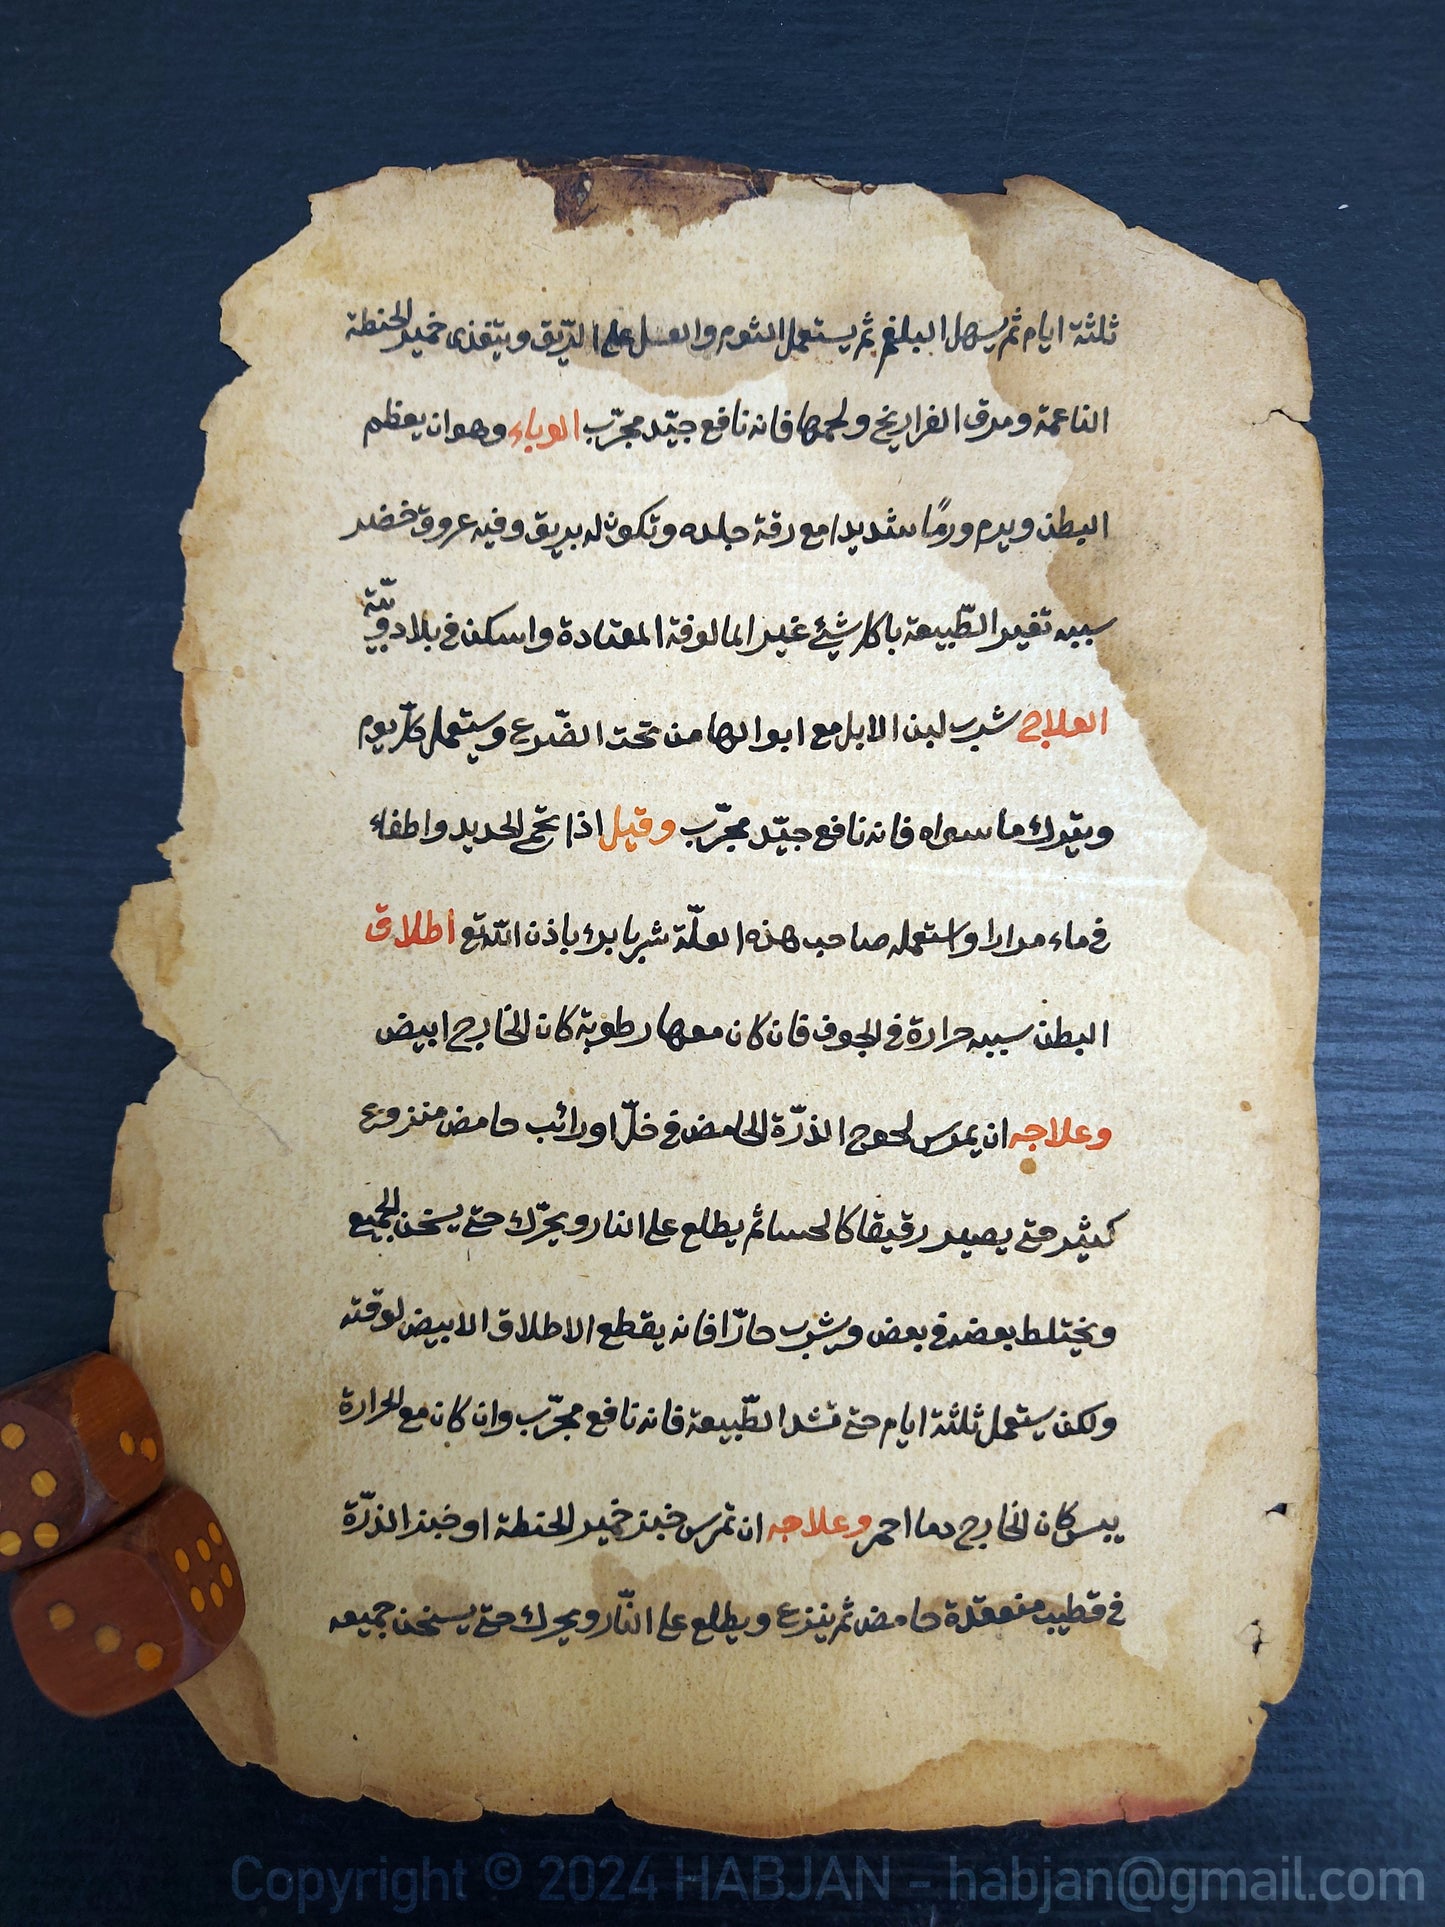 ثلثة ايام ثم يسهل البلغم ثم يستعمل الثوم والعسل على الريق ويتغذى خمير الحنطة
الناعمة ومرق الفراريخ ولحمها فانه نافع جيّد مجرّب الوباء وهو ان يعظم
البطن ويرم ورمًا شديدا مع رقة جلده وتكون له بريق وفيه عروق خضر
سببه تغير الطّبيعة باكل شيئ غير المالوفة المعتادة واسكن في بلاد وبّيّة
العلاج شرب لبن الابل مع ابوالها من تحت الضّرع ويستعمل كلّ يوم
ويترك ما سواه فانه نافع جيّد مجرّب وقيل اذا تحم الحديد واطفاء
في ماء مرارا واستعمله صاحب هذه العلّة شربا برئ باذن الله تع اطلاق
البطن سببه حرارة في الجوف فان كان معها رطوبة كان الخارج ابيض
وعلاجه ان يمرس لحوح الذرّة الحامض في خلّ او رائب حامض منزوع
كثير حتى يصير رقيقا كالحسا ثم يطلع على النار ويحرّك حتى يسخن الجميع
ويختلط بعضه في بعض ويشرب حارّا فانه يقطع الاطلاق الابيض لوقته
ولكن يستعمل ثلثة ايام حتى تشد الطّبيعة فانه نافع مجرّب وان كان مع الحرارة
يبس كان الخارج دما احمر وعلاجه ان تمرس خبز خمير الحنطة او خبز الذرّة
في قطيب منعقدة حامض ثم ينزع ويطلع على النّار ويحرك حتى يسخن جميعه
Copyright © 2024 HABJAN - habjan@gmail.com